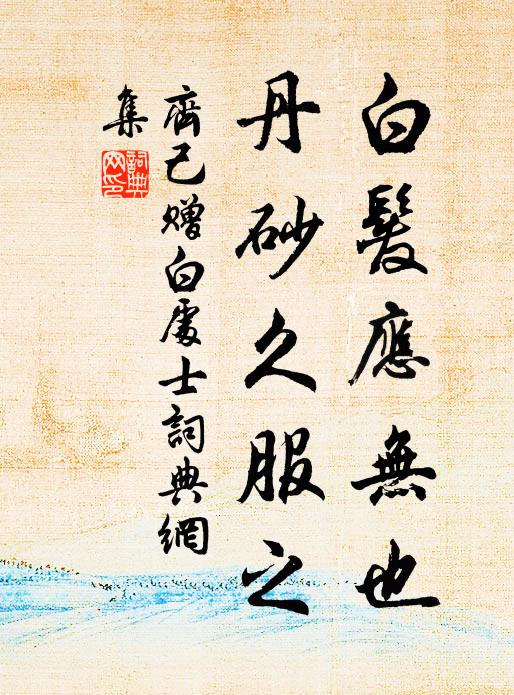 白髮應無也
丹砂久服之
齊己贈白處士詞典網
集
詞典
網印